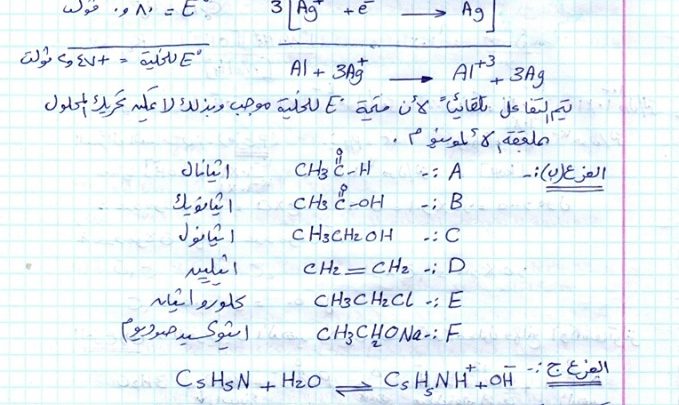 3[Ag⁺ + e⁻ ⟶ Ag] E° = ٠٫٨٠ فولت
Al + 3Ag⁺ ⟶ Al⁺³ + 3Ag E° للخلية = +٢٫٤٧ فولت
يتم التفاعل تلقائياً لأن قيمة E° للخلية موجب وبذلك لا يمكن تحريك المحلول
بملعقة الألومنيوم.
الفرع (ب):- A :- CH3C(=O)-H ايثانال
B :- CH3C(=O)-OH ايثانويك
C :- CH3CH2OH ايثانول
D :- CH2=CH2 ايثيلين
E :- CH3CH2Cl كلورو ايثان
F :- CH3CH2ONa ايثوكسيد صوديوم
الفرع ج :- C5H5N + H2O ⇌ C5H5NH⁺ + OH⁻